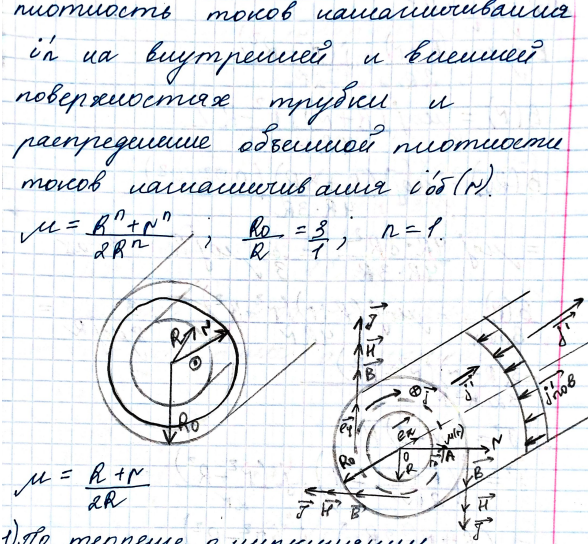 плотность токов намагничивания
i'п на внутренней и внешней
поверхностях трубки и
распределение объемной плотности
токов намагничивания i'об(r).
μ = (Rⁿ + rⁿ) / 2Rⁿ ; R₀/R = 3/1 ; n = 1.
R r
R₀
J
H
B
⊗ j
j'
j'
j'пов
R₀
O
R
A
μ(r)
r
B
H
J
J H B
μ = (R + r) / 2R
1) По теореме о циркуляции